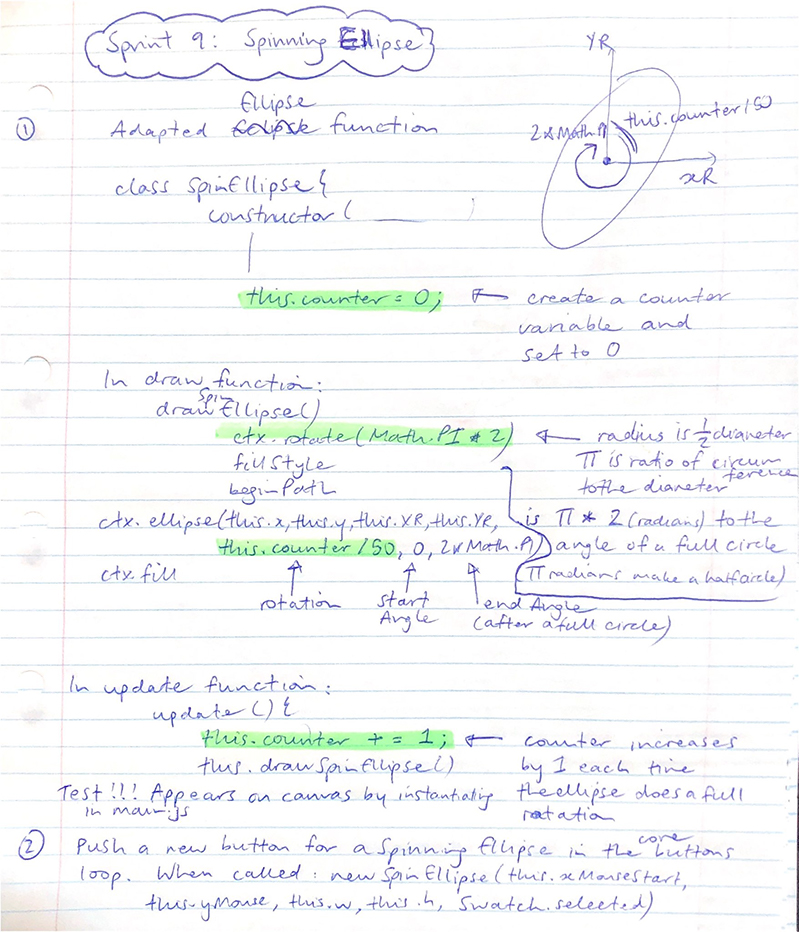 Sprint 9: Spinning Ellipse
YR
this.counter/50
2*Math.PI
xR
① Adapted Ellipse function
class SpinEllipse{
constructor( ______ )
this.counter = 0; ← create a counter
variable and
set to 0
In draw function:
drawSpinEllipse()
ctx.rotate(Math.PI * 2) ← radius is 1/2 diameter
fillStyle π is ratio of circumference
beginPath to the diameter
ctx.ellipse(this.x, this.y, this.XR, this.YR, is π * 2 (radians) to the
this.counter/50, 0, 2*Math.PI) angle of a full circle
ctx.fill (π radians make a half circle)
rotation start end Angle
Angle (after a full circle)
In update function:
update() {
this.counter += 1; ← counter increases
this.drawSpinEllipse() by 1 each time
Test!!! Appears on canvas by instantiating the ellipse does a full
in main.js rotation
② Push a new button for a Spinning Ellipse in the core buttons
loop. When called: new SpinEllipse(this.xMouseStart,
this.yMouse, this.w, this.h, Swatch.selected)